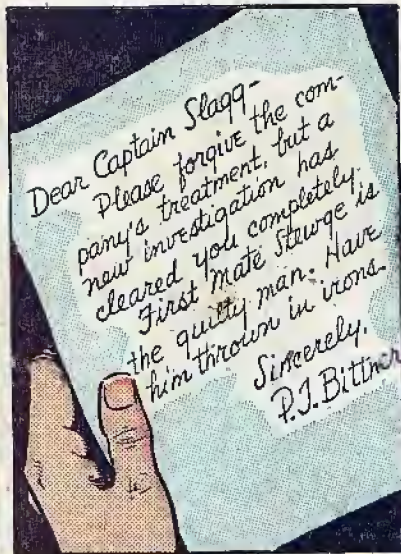 Dear Captain Slagg-
Please forgive the com-
pany's treatment, but a
new investigation has
cleared you completely.
First Mate Stewge is
the guilty man. Have
him thrown in irons.
Sincerely,
P.J. Bittner